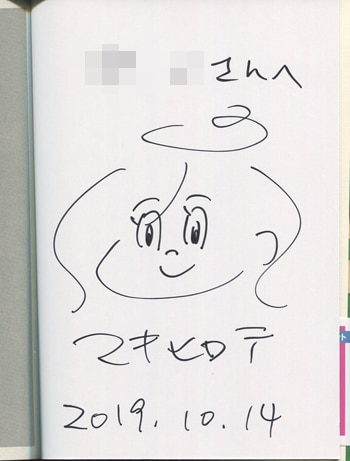 さんへ
マキヒロチ
2019.10.14